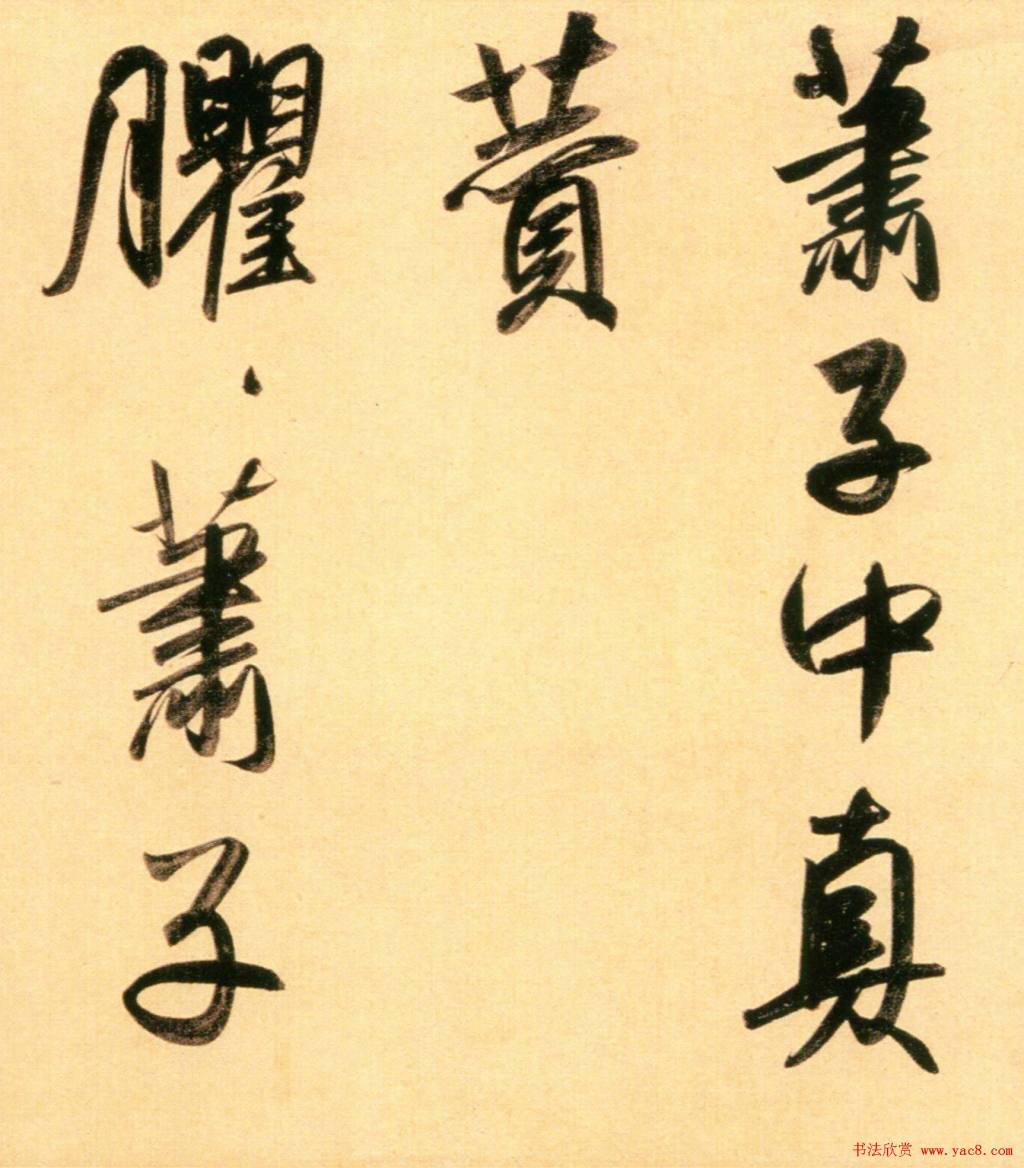 蕭子中真
贊
臞、蕭子
书法欣赏 www.yac8.com